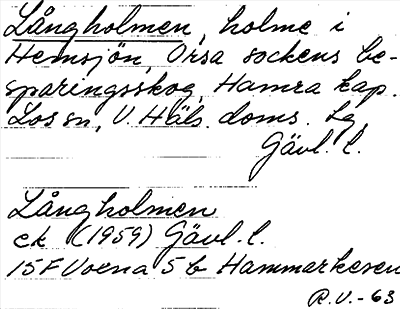 Långholmen, holme i
Hemsjön, Orsa sockens be-
sparingsskog, Hamra kap.
Los sn, V. Häls. doms. lg
Gävl. l.
Långholmen
ek (1959) Gävl. l.
15F Voxna 5 b Hammarkesen
R.V.-63